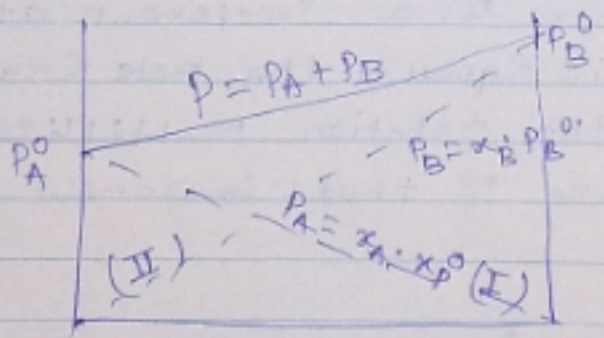 P_B^0
P = P_A + P_B
P_A^0
P_B = x_B · P_B^0
P_A = x_A · x_P^0 (I)
(II)